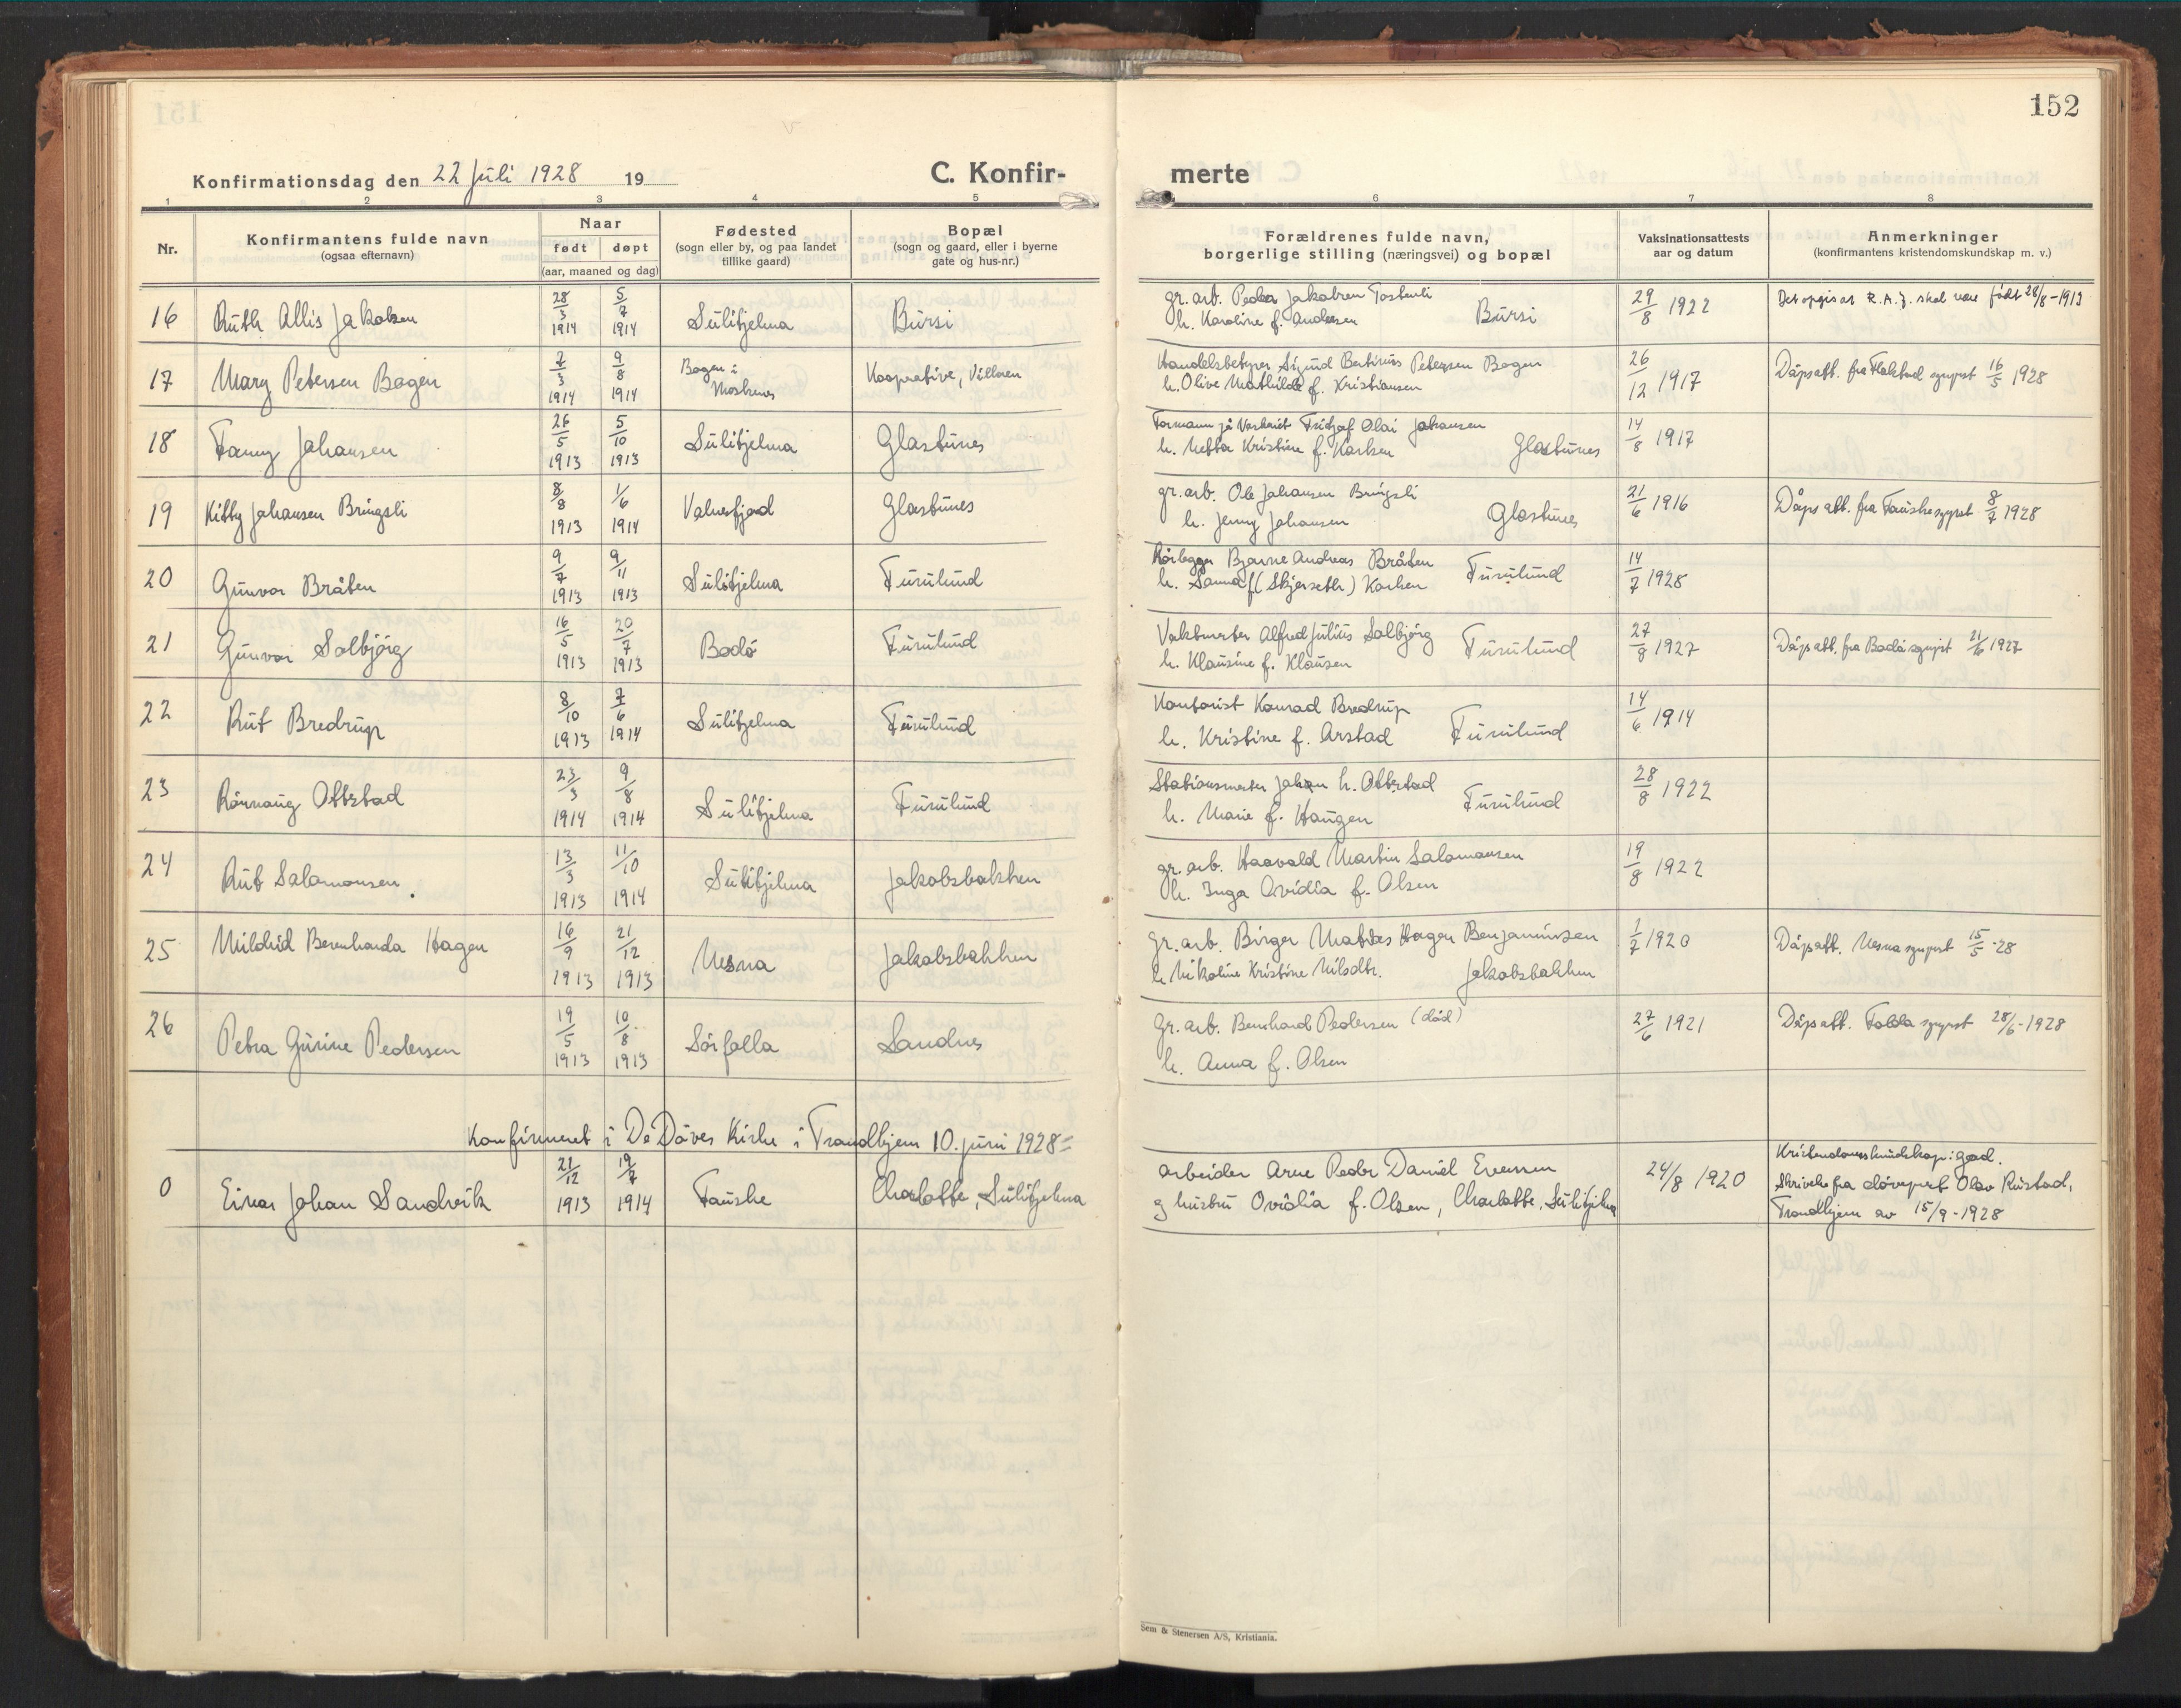 152
Konfirmationsdag den 22 Juli 1928 19
C. Konfirmerte
1 2 3 4 5 6 7 8
Nr. Konfirmantens fulde navn (ogsaa efternavn) Naar født døpt (aar, maaned og dag) Fødested (sogn eller by, og paa landet tillike gaard) Bopæl (sogn og gaard, eller i byerne gate og hus-nr.) Forældrenes fulde navn, borgerlige stilling (næringsvei) og bopæl Vaksinationsattests aar og datum Anmerkninger (konfirmantens kristendomskundskap m. v.)
16 Ruth Allis Jakobsen 28/3 1914 5/7 1914 Sulitjelma Bursi gr. arb. Peder Jakobsen Tostenli h. Karoline f. Andersen Bursi 29/8 1922 Det opgis at R. A. J. skal være født 28/8-1913
17 Mary Petersen Bogen 7/3 1914 9/8 1914 Bogen i Moskenes Kooperative, Villaen Handelsbetyrer Sigurd Bertinius Petersen Bogen h. Olive Mathilde f. Kristiansen 26/12 1917 Dåpsatt. fra Flakstad sgnprst 16/5 1928
18 Fanny Johansen 26/5 1913 5/10 1913 Sulitjelma Glastunes Formann på Verkstet Fridtjof Olai Johansen h. Netta Kristine f. Karlsen Glastunes 14/8 1917
19 Kitty Johansen Bringsli 8/8 1913 1/6 1914 Valnesfjord Glastunes gr. arb. Ole Johansen Bringsli h. Jenny Johansen Glastunes 21/6 1916 Dåpsatt. fra Fauske sgnprst 8/7 1928
20 Gunvor Bråten 9/7 1913 9/11 1913 Sulitjelma Furulund Rörlegger Bjarne Andreas Bråten h. Sanna f (Skjerseth) Karlsen Furulund 14/7 1928
21 Gunvor Solbjörg 16/5 1913 20/7 1913 Bodö Furulund Vaktmester Alfred Julius Solbjörg h. Klausine f. Klausen Furulund 27/8 1927 Dåpsatt. fra Bodö sgnprst 21/6 1927
22 Rut Bredrup 8/10 1913 7/6 1914 Sulitjelma Furulund Kontorist Konrad Bredrup h. Kristine f. Arstad Furulund 14/6 1914
23 Rönnaug Ottestad 23/3 1914 9/8 1914 Sulitjelma Furulund Stationsmester Johan H. Ottestad h. Marie f. Haugen Furulund 28/8 1922
24 Rut Salamonsen 13/3 1913 11/10 1914 Sulitjelma Jakobsbakken gr. arb. Haavald Martin Salamonsen h. Inga Ovidia f. Olsen 19/8 1922
25 Mildrid Berenharda Hagen 16/9 1913 21/12 1913 Nesna Jakobsbakken gr. arb. Birger Mathias Hagen Benjaminsen h. Nikoline Kristine Nilsdtr. Jakobsbakken 1/7 1920 Dåpsatt. Nesna sgnprst 15/5-28
26 Petra Gurine Pedersen 19/5 1913 10/8 1913 Sörfolla Sandnes gr. arb. Bernhard Pedersen (död) h. Anna f. Olsen 27/6 1921 Dåpsatt. Folda sgnprst 28/6-1928
Konfirmert i De Döves Kirke i Trondhjem 10. juni 1928 =
0 Einar Johan Sandvik 21/12 1913 19/7 1914 Fauske Charlotte, Sulitjelma arbeider Arne Peder Daniel Evensen g hustru Ovidia f. Olsen, Charlotte, Sulitjelma 24/8 1920 Kristendomskundskap: god. Skrivelse fra döveprest Olav Rustad, Trondhjem av 15/9-1928
Sem & Stenersen A/S, Kristiania.